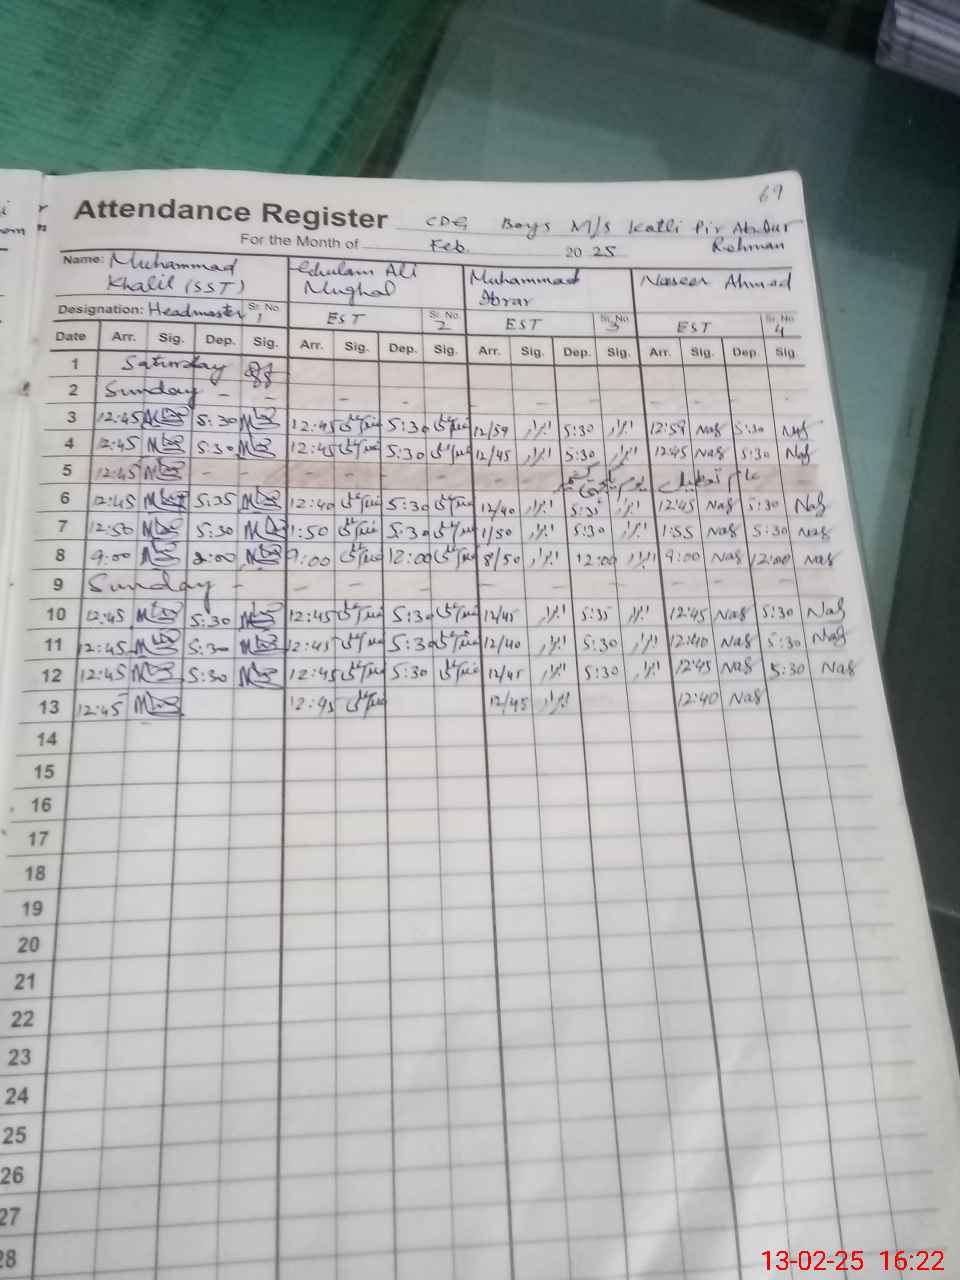 69
Attendance Register CDG Boys M/S Katli Pir Abdur Rehman
For the Month of Feb. 2025
Name: Muhammad Khalil (SST) Ghulam Ali Mughal Muhammad Ibrar Naseer Ahmad
Designation: Headmaster Sr. No. 1 EST Sr. No. 2 EST Sr. No. 3 EST Sr. No. 4
Date Arr. Sig. Dep. Sig. Arr. Sig. Dep. Sig. Arr. Sig. Dep. Sig. Arr. Sig. Dep. Sig.
1 Saturday
2 Sunday - - - - - - - - -
3 12:45 5:30 12:45 5:30 12/59 5:30 12:59 Nas 5:30 Nas
4 12:45 5:30 12:45 5:30 12/45 5:30 12:45 Nas 5:30 Nas
5 12:45 - - - - - - یوم یکجہتی کشمیر عام تعطیل
6 12:45 5:35 12:40 5:30 12/40 5:35 12:45 Nas 5:30 Nas
7 12:50 5:30 1:50 5:30 1/50 5:30 1:55 Nas 5:30 Nas
8 9:00 2:00 9:00 12:00 8/50 12:00 9:00 Nas 12:00 Nas
9 Sunday - - - - - - - - -
10 12:45 5:30 12:45 5:30 12/45 5:35 12:45 Nas 5:30 Nas
11 12:45 5:30 12:45 5:30 12/40 5:30 12:40 Nas 5:30 Nas
12 12:45 5:30 12:45 5:30 12/45 5:30 12:45 Nas 5:30 Nas
13 12:45 12:45 12/45 12:40 Nas
14
15
16
17
18
19
20
21
22
23
24
25
26
27
28
13-02-25 16:22